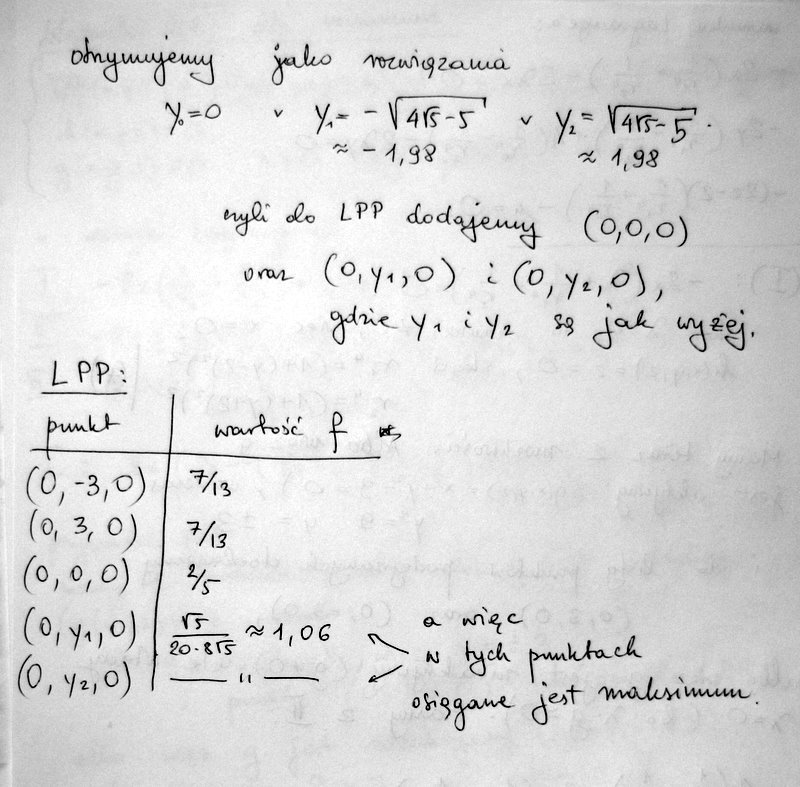 otrzymujemy jako rozwiązania
y₀=0 ∨ y₁= -√(4√5-5) ∨ y₂= √(4√5-5).
≈ -1,98 ≈ 1,98
czyli do LPP dodajemy (0,0,0)
oraz (0,y₁,0) i (0,y₂,0),
gdzie y₁ i y₂ są jak wyżej.
LPP:
punkt wartość f
(0,-3,0) 7/13
(0,3,0) 7/13
(0,0,0) 2/5
(0,y₁,0) √5/(20-8√5) ≈ 1,06
(0,y₂,0) —— " ——
a więc
w tych punktach
osiągane jest maksimum.